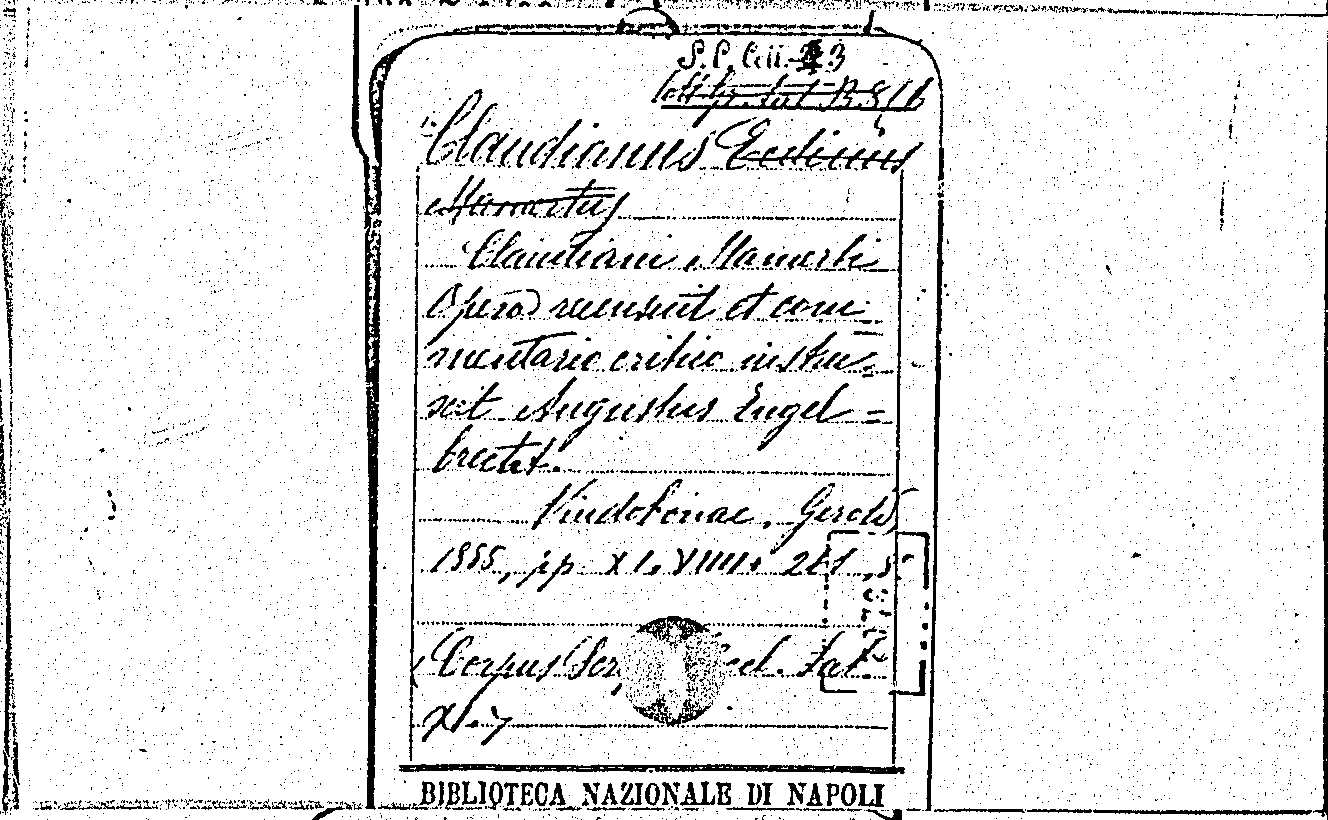 S. P. Coll. 23
Claudianus Ecdicius
Mamertus
Claudiani Mamerti
Opera recensuit et com=
mentario critico instru=
xit Augustus Engel=
brecht.
Vindobonae, Gerold
1885, pp XLVIIII. 261, 8°
(Corpus Scr eccl. Lat.
XI.)
BIBLIOTECA NAZIONALE DI NAPOLI